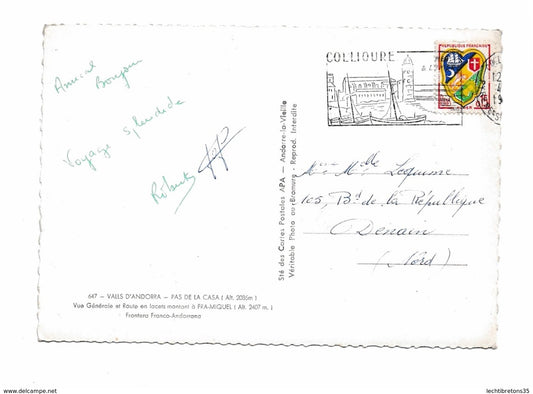 COLLIOURE
REPUBLIQUE FRANÇAISE
Amical
Bonjour
Voyage splendide
Sté des Cartes Postales APA — Andorre-la-Vieille
Véritable Photo au Bromure - Reprod. Interdite
Mlle Lequime
105, Bd de la République
Denain
(Nord)
647 — VALLS D'ANDORRA — PAS DE LA CASA (Alt. 2085m)
Vue Générale et Route en lacets montant à FRA-MIQUEL (Alt. 2407 m.)
Frontera Franco-Andorrana
www.delcampe.net
lechtibretons35